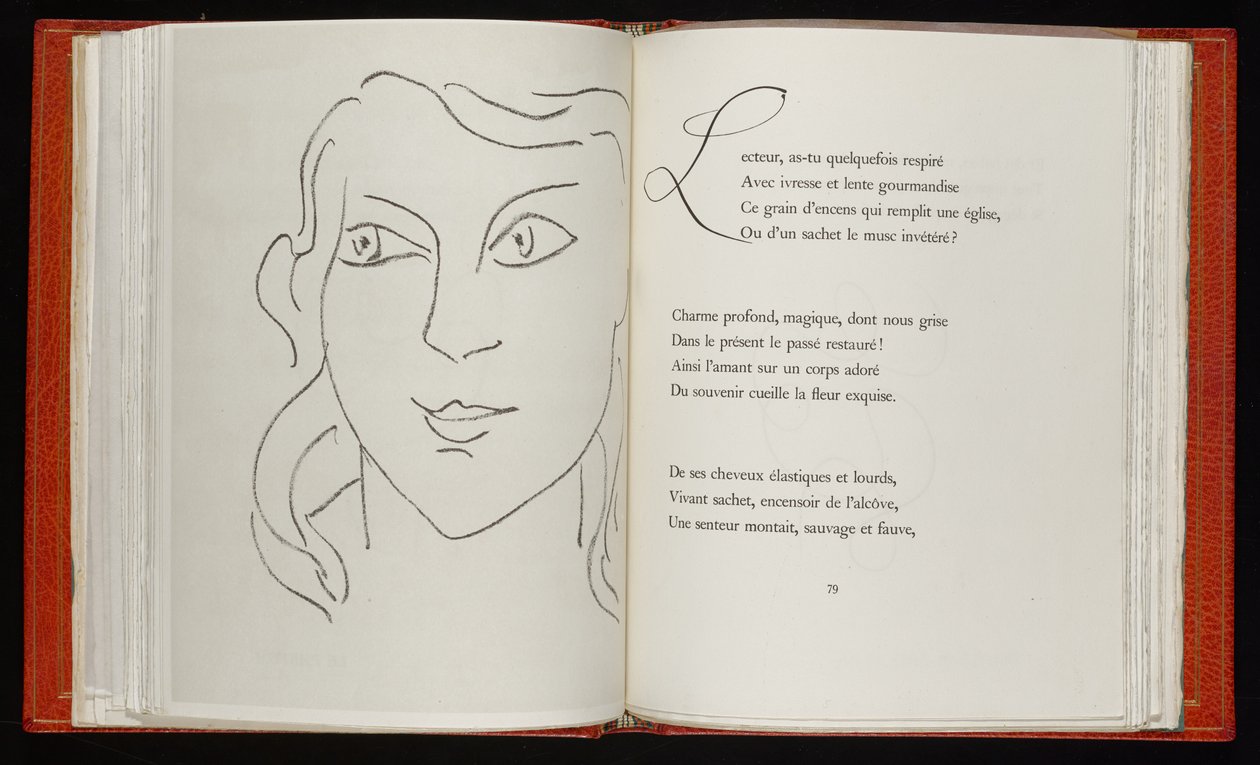 Lecteur, as-tu quelquefois respiré
Avec ivresse et lente gourmandise
Ce grain d'encens qui remplit une église,
Ou d'un sachet le musc invétéré?
Charme profond, magique, dont nous grise
Dans le présent le passé restauré!
Ainsi l'amant sur un corps adoré
Du souvenir cueille la fleur exquise.
De ses cheveux élastiques et lourds,
Vivant sachet, encensoir de l'alcôve,
Une senteur montait, sauvage et fauve,
79